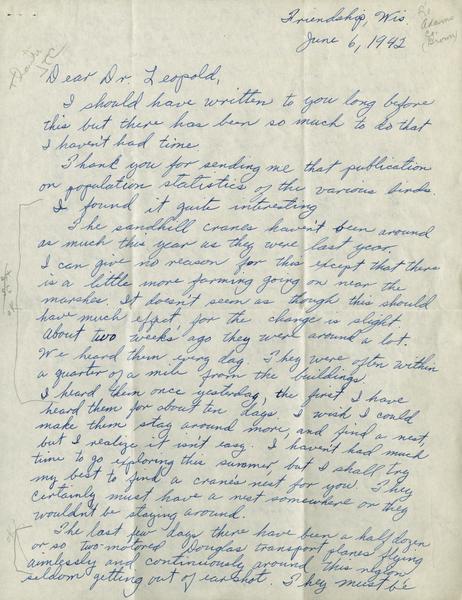 Friendship, Wis.
June 6, 1942
Adams
Co
Dear Dr. Leopold,
I should have written to you long before
this but there has been so much to do that
I haven't had time.
Thank you for sending me that publication
on population statistics of the various birds.
I found it quite interesting
The sandhill cranes haven't been around
as much this year as they were last year.
I can give no reason for this except that there
is a little more farming going on near the
marshes. It doesn't seem as though this should
have much effect, for the change is slight.
About two weeks ago they were around a lot.
We heard them every day. They were often within
a quarter of a mile from the buildings.
I heard them once yesterday, the first I have
heard them for about ten days. I wish I could
make them stay around more, and find a nest,
but I realize it isn't easy. I haven't had much
time to go exploring this summer but I shall try
my best to find a crane's nest for you. They
certainly must have a nest somewhere or they
wouldn't be staying around.
The last few days there have been a half dozen
or so two-motored Douglas transport planes flying
aimlessly and continuously around this region
seldom getting out of earshot. They must be